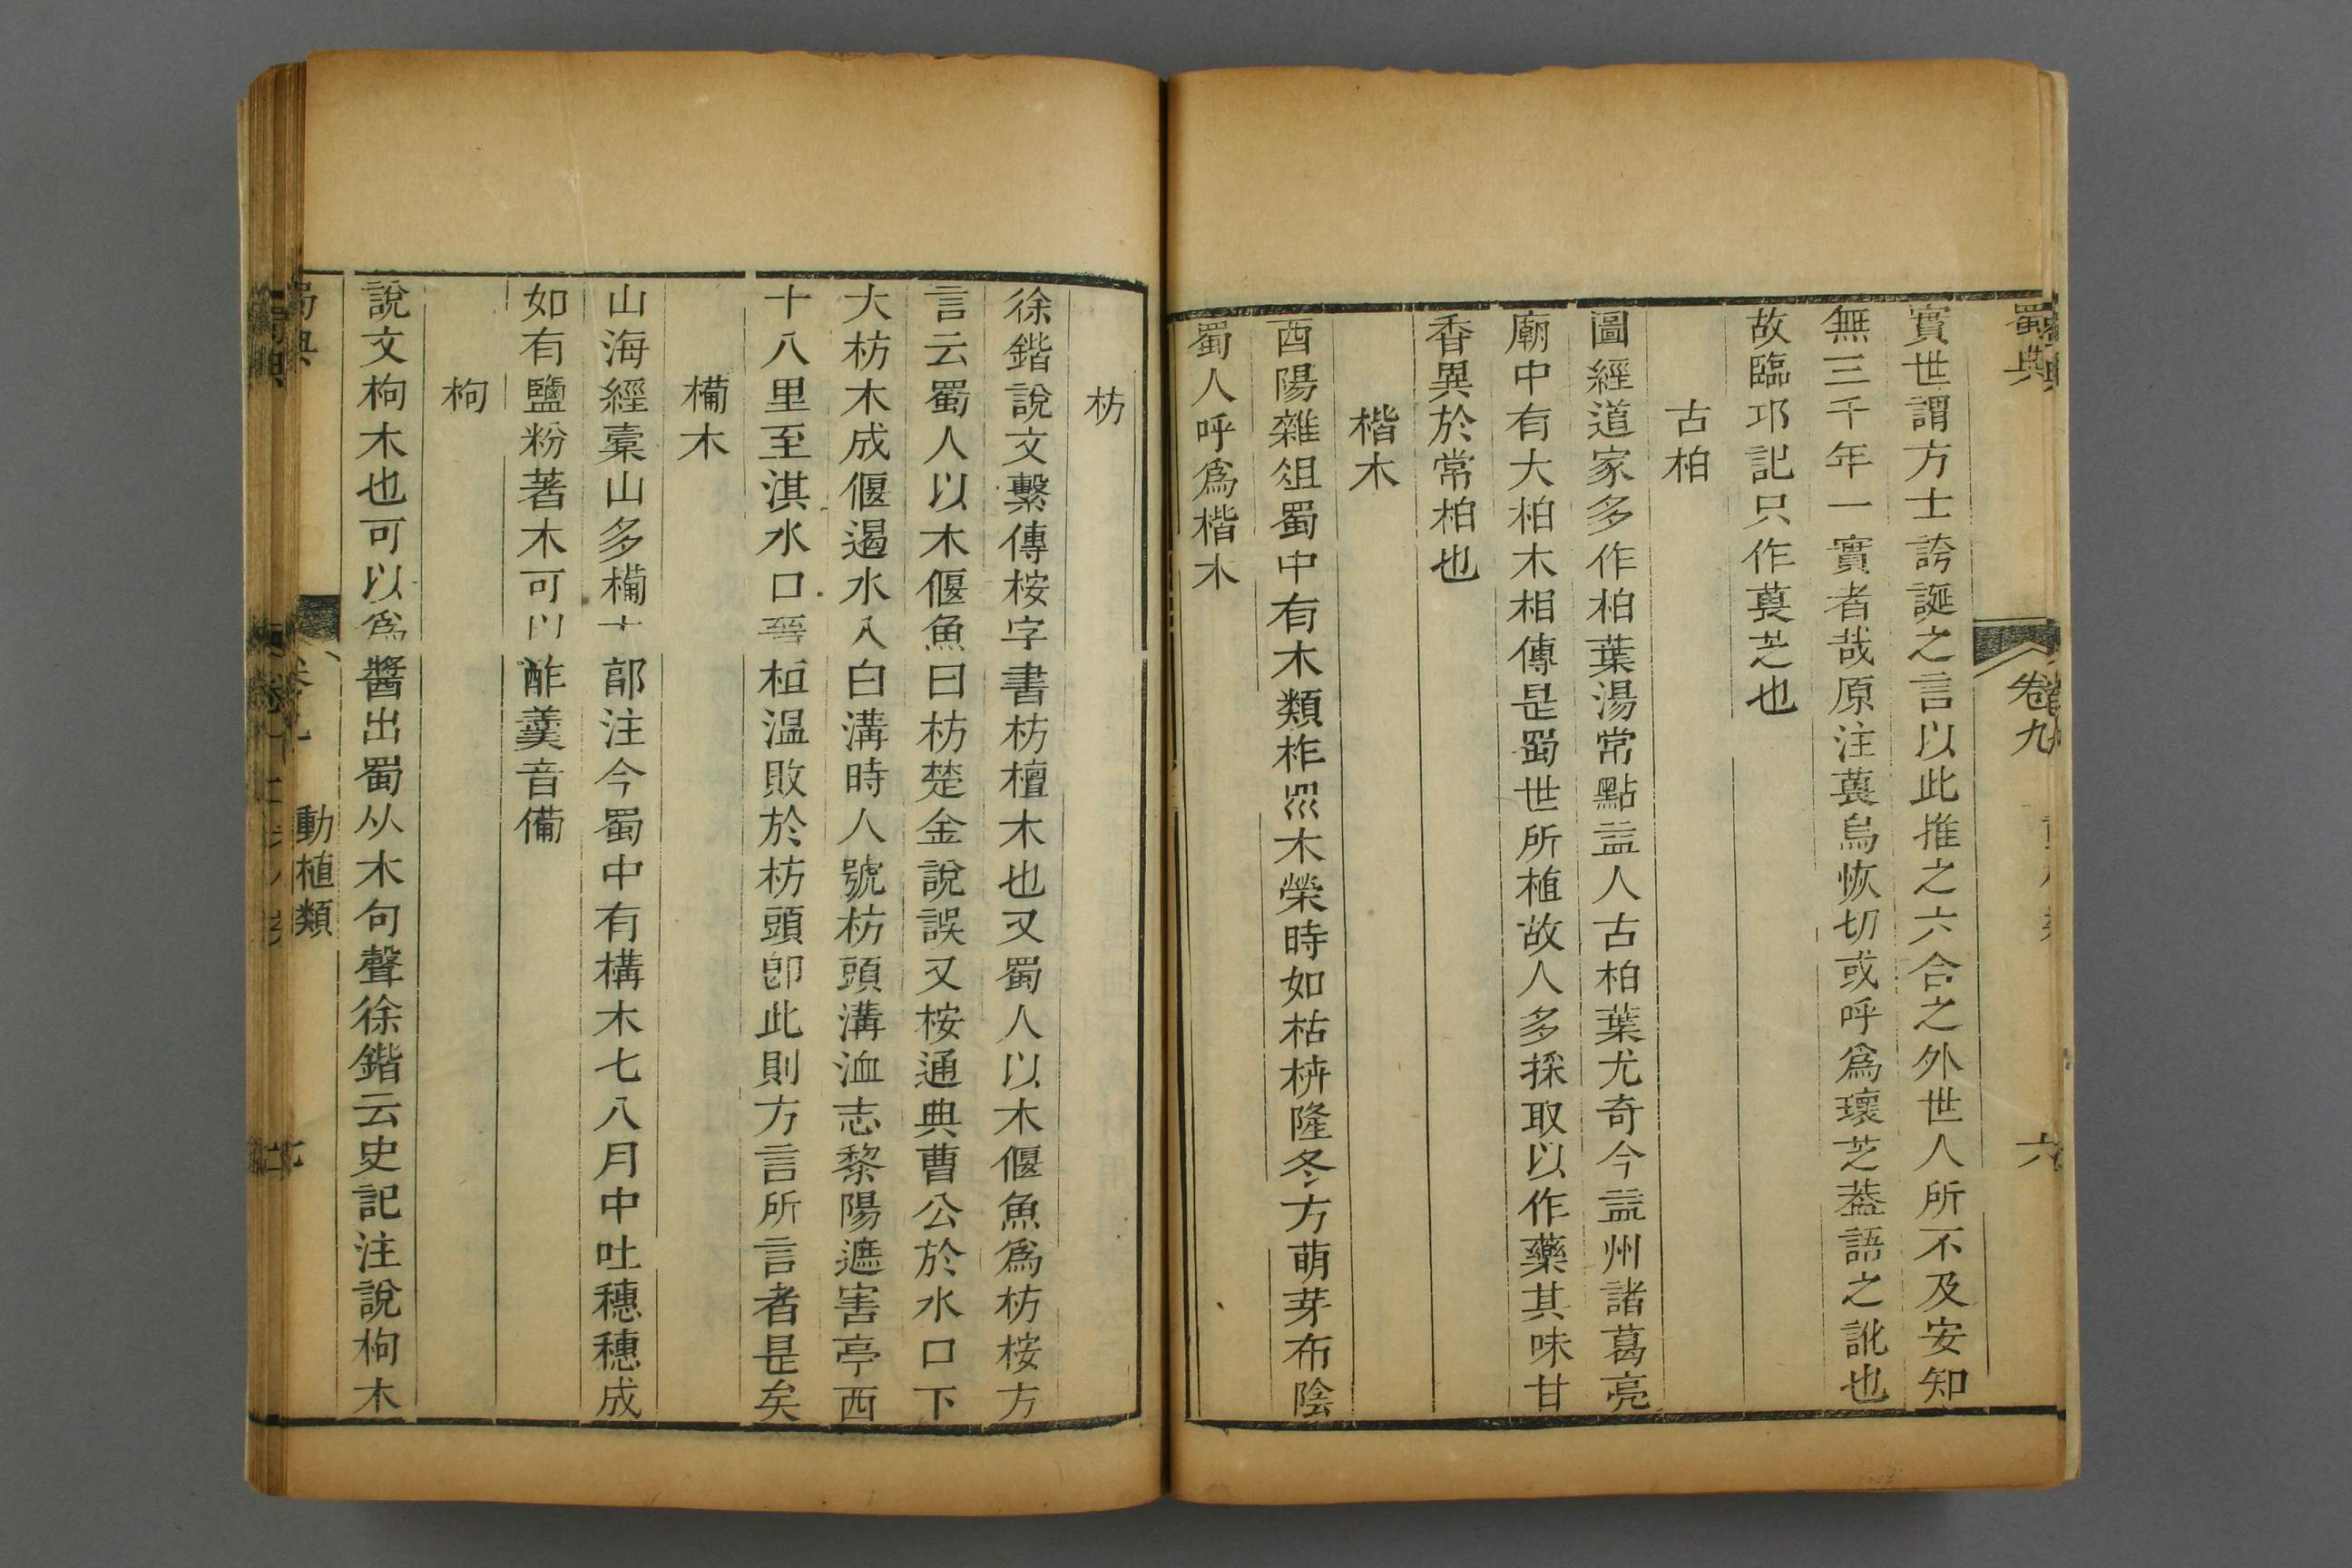 蜀典
卷九
六
實世謂方士誇誕之言以此推之六合之外世人所不及安知
無三千年一實者哉原注蘹烏恢切或呼爲瓌芝葢語之訛也
故臨邛記只作蘹芝也
古柏
圖經道家多作柏葉湯常點益人古柏葉尤奇今益州諸葛亮
廟中有大柏木相傳是蜀世所植故人多採取以作藥其味甘
香異於常柏也
楷木
酉陽雜俎蜀中有木類柞衆木榮時如枯枿隆冬方萌芽布陰
蜀人呼爲楷木
枋
徐鍇說文繫傳桉字書枋檀木也又蜀人以木偃魚爲枋桉方
言云蜀人以木偃魚曰枋楚金說誤又桉通典曹公於水口下
大枋木成偃遏水入白溝時人號枋頭溝洫志黎陽遮害亭西
十八里至淇水口晉桓溫敗於枋頭卽此則方言所言者是矣
㯞木
山海經橐山多㯞木郭注今蜀中有構木七八月中吐穗穗成
如有鹽粉著木可以酢羹音備
枸
說文枸木也可以爲醬出蜀从木句聲徐鍇云史記注說枸木
動植類